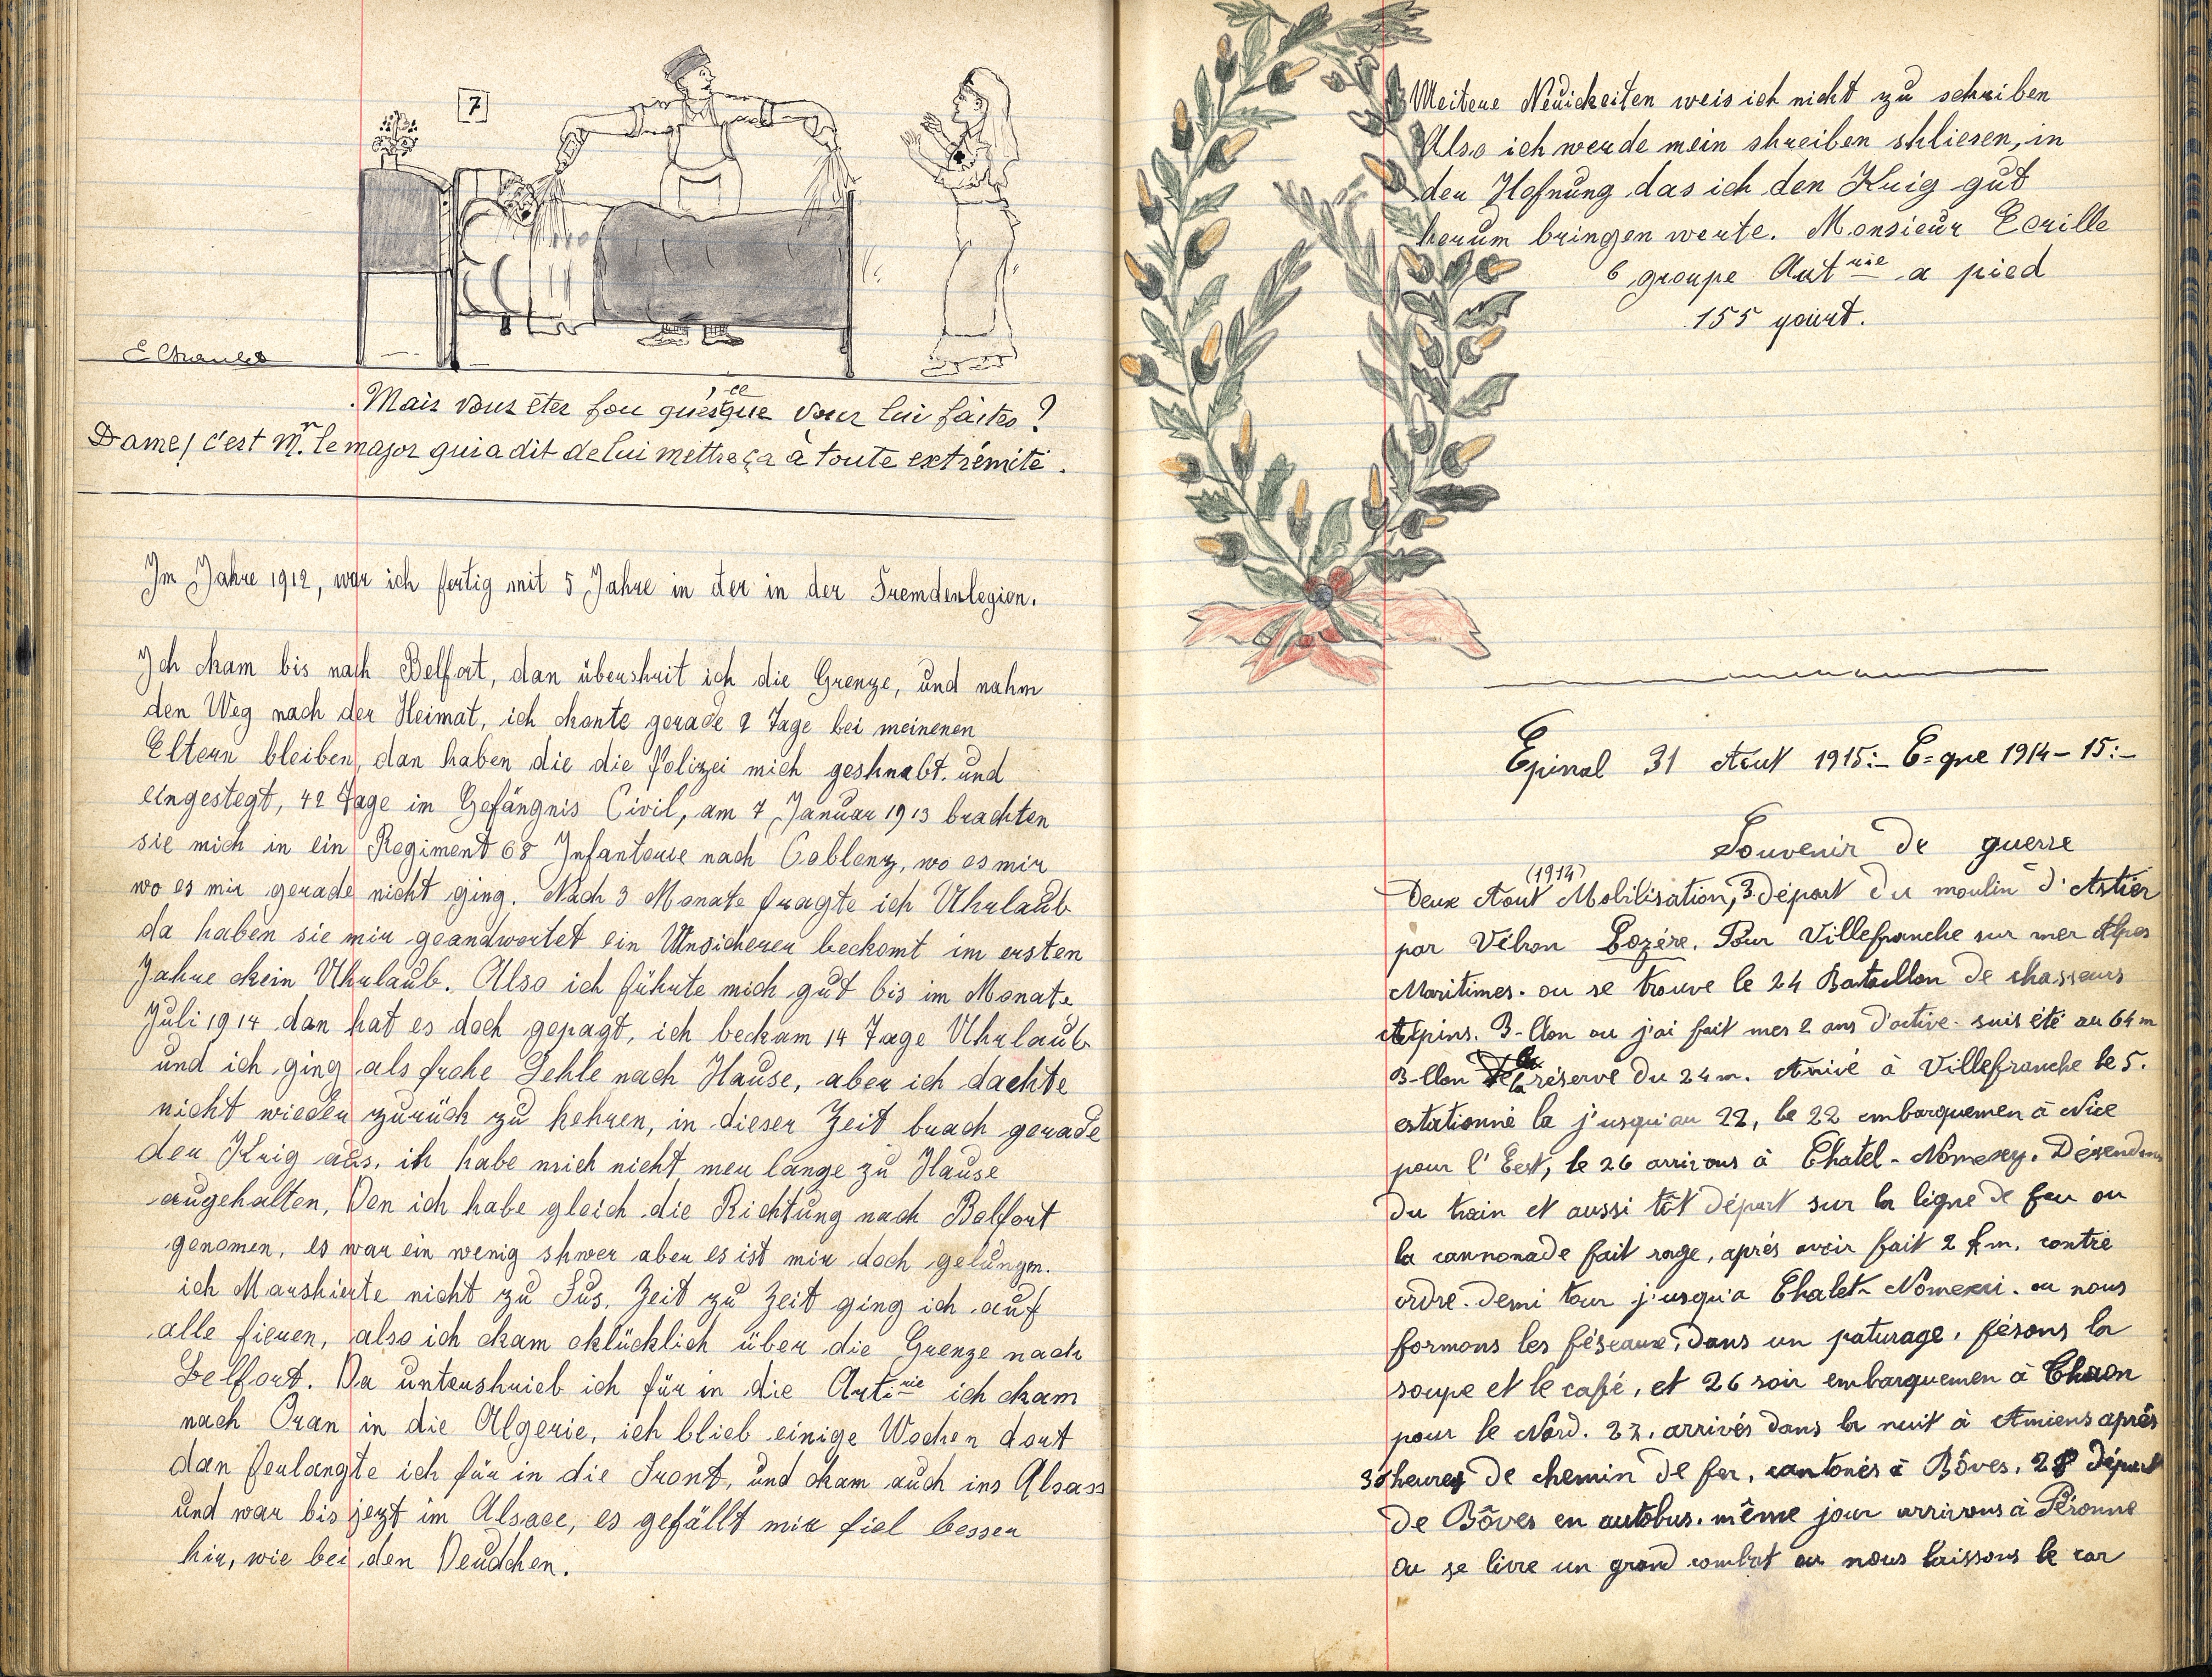 7
E Charles
Mais vous êtes fou qu'es-ce que vous lui faites ?
Dame! c'est Mr. le major qui a dit de lui mettre ça à toute extrémité.
Im Jahre 1912, war ich fertig mit 5 Jahre in der in der Fremdenlegion.
Ich cham bis nach Belfort, dan übershrit ich die Grenze, und nahm
den Weg nach der Heimat, ich chonte gerade 2 Tage bei meinenen
Eltern bleiben, dan haben die die Polizei mich geshnabt. und
eingestegt, 42 Tage im Gefängnis Civil, am 7 Januar 1913 brachten
sie mich in ein Regiment 68 Infanterie nach Coblenz, wo es mir
wo es mir gerade nicht ging. Nach 3 Monate fragte ich Uhrlaub
da haben sie mir geandwortet ein Unsicherer beckomt im ersten
Jahre ckein Uhrlaub. Also ich führte mich gut bis im Monate
Juli 1914 dan hat es doch gepagt, ich beckam 14 Tage Uhrlaub
und ich ging als frohe Sehle nach Hause, aber ich dachte
nicht wieder zurück zu kehren, in dieser Zeit brach gerade
der Krig aus, ich habe mich nicht mer lange zu Hause
augehalten, Den ich habe gleich die Richtung nach Belfort
genomen, es war ein wenig shwer aber es ist mir doch gelungm.
ich Marshierte nicht zu Fus, Zeit zu Zeit ging ich auf
alle fieren, also ich ckam cklücklich über die Grenze nach
Belfort. Da untershrieb ich für in die Arti.rie ich ckam
nach Oran in die Algerie, ich blieb einige Wochen dort
dan ferlangte ich für in die Front, und ckam auch ins Alsass
und war bis jezt im Alsace, es gefällt mir fiel besser
hir, wie bei den Deudchen.
Weitere Neuickeiten weis ich nicht zu schreiben
Also ich werde mein shreiben shliesen, in
der Hofnung das ich den Krig gut
herum bringen werte. Monsieur Ecrille
6 groupe Artrie a pied
155 court.
Epinal 31 Aout 1915:- C=gne 1914-15:-
Souvenir de guerre
Deux Aout (1914) Mobilisation, 3 départ du moulin d'Astier
par Vébron Lozére. Pour Villefranche sur mer Alpes
Maritimes. ou se trouve le 24 Bataillon de chasseurs
Alpins. B-llon ou j'ai fait mes 2 ans d'active. suis été au 64m
B-llon de la réserve du 24m. Arrivé à Villefranche le 5.
estationné la j'usqu'au 22, le 22 embarquemen à Nice
pour l'Eest, le 26 arrivons à Chatel-Nomexy. Désendons
du train et aussi tôt départ sur la ligne de feu ou
la cannonade fait rage, aprés avoir fait 2 km. contre
ordre. demi tour j'usqu'a Chalet-Nomexi. ou nous
formons les féseaux, dans un paturage, fésons la
soupe et le café, et 26 soir embarquemen à Chaon
pour le Nord. 27. arrivés dans la nuit à Amiens aprés
30 heures de chemin de fer, cantonés à Bôves, 28 départ
de Bôves en autobus. même jour arrivons à Péronne
ou se livre un grand combat ou nous laissons le car